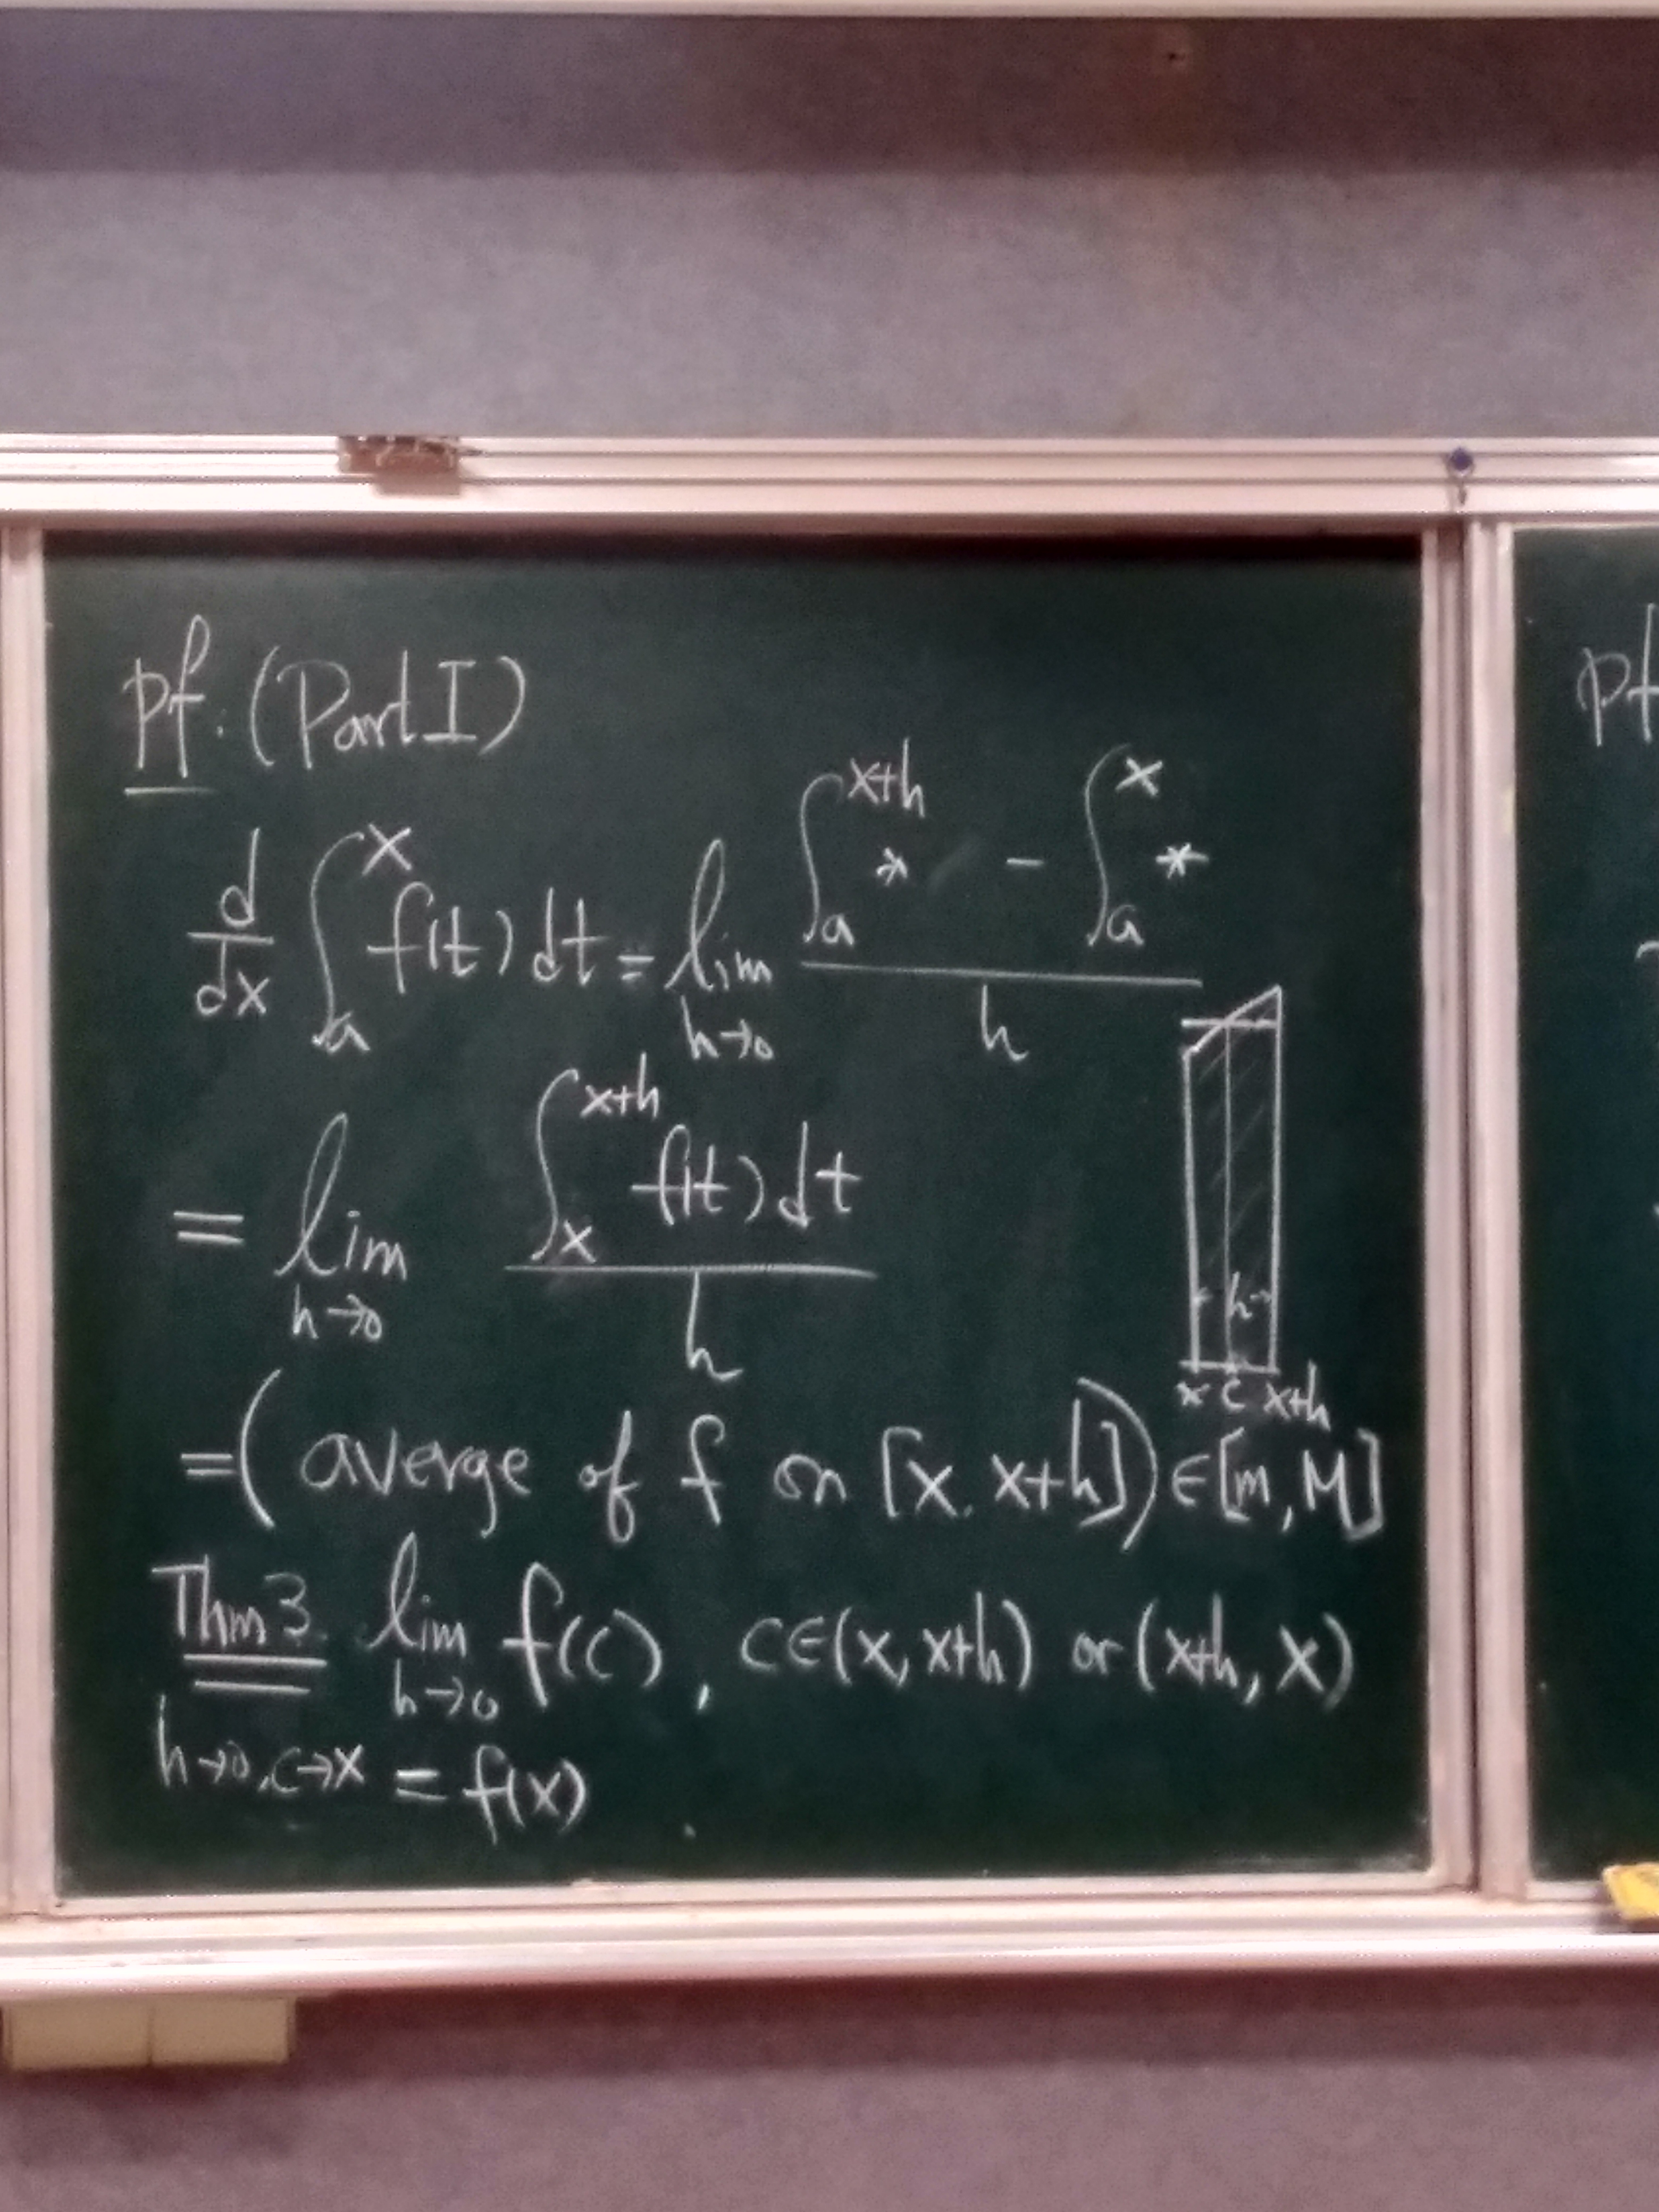 pf. (Part I)
d/dx ∫_a^x f(t) dt = lim_{h→0} (∫_a^{x+h} * - ∫_a^x *) / h
= lim_{h→0} (∫_x^{x+h} f(t) dt) / h
h
x c x+h
= ( averge of f on [x. x+h]) ∈ [m, M]
Thm 3. lim_{h→0} f(c), c∈(x, x+h) or (x+h, x)
h→0, c→x = f(x)
pf